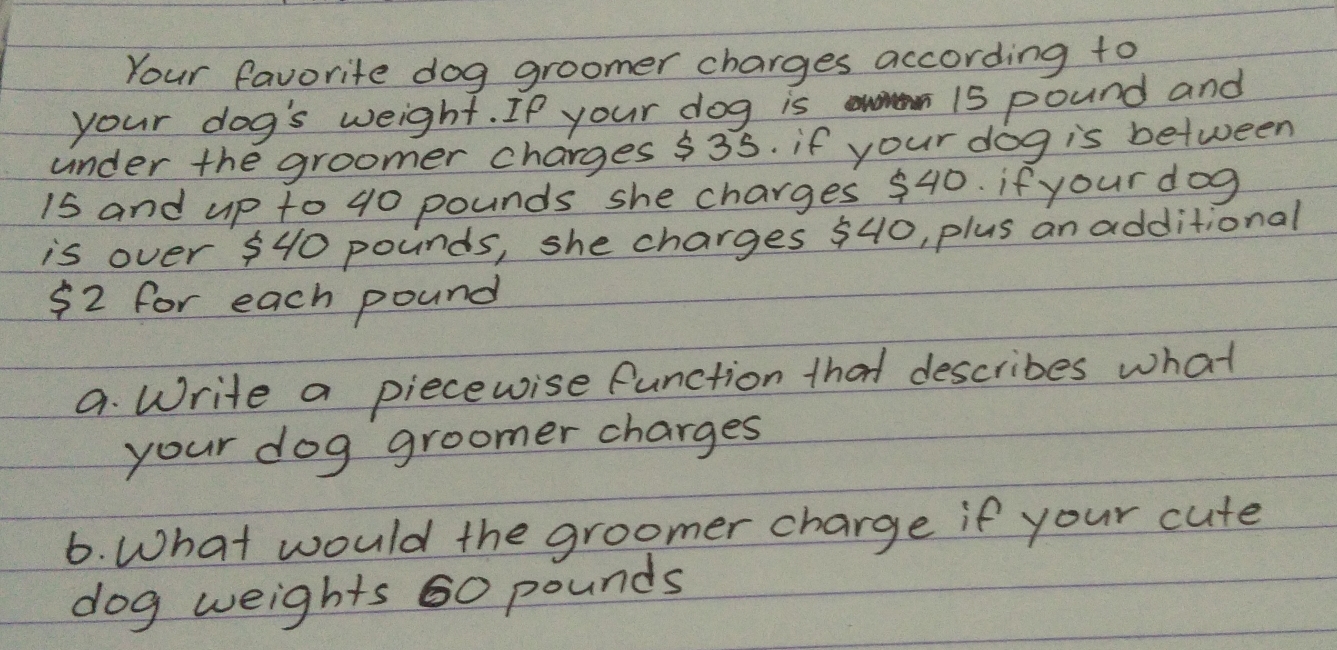 Your favorite dog groomer charges according to
your dog's weight. If your dog is 15 pound and
under the groomer charges $35. if your dog is between
15 and up to 40 pounds she charges $40. if your dog
is over $40 pounds, she charges $40, plus an additional
$2 for each pound
a. Write a piecewise function that describes what
your dog groomer charges
b. What would the groomer charge if your cute
dog weights 60 pounds